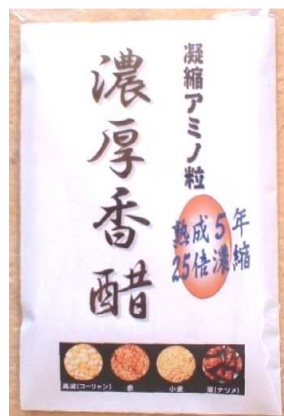 凝縮アミノ粒
濃厚香醋
熟成5年
25倍濃縮
高粱(コーリャン)
黍
小麦
棗(ナツメ)